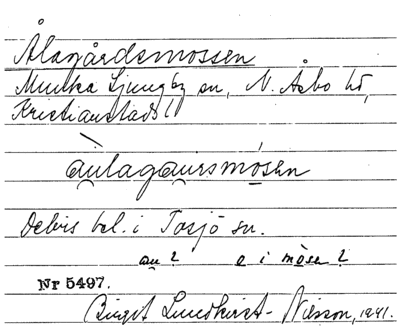 Ålagårdsmossen
Munka Ljungby sn, N. Åsbo hd,
Kristianstads l
àu̯lagau̯rsmósen
Delvis bel. i Tosjö sn.
au̯ ? o i mósen ?
Nr 5497.
Birgit Lundkvist-Nilsson, 1941.